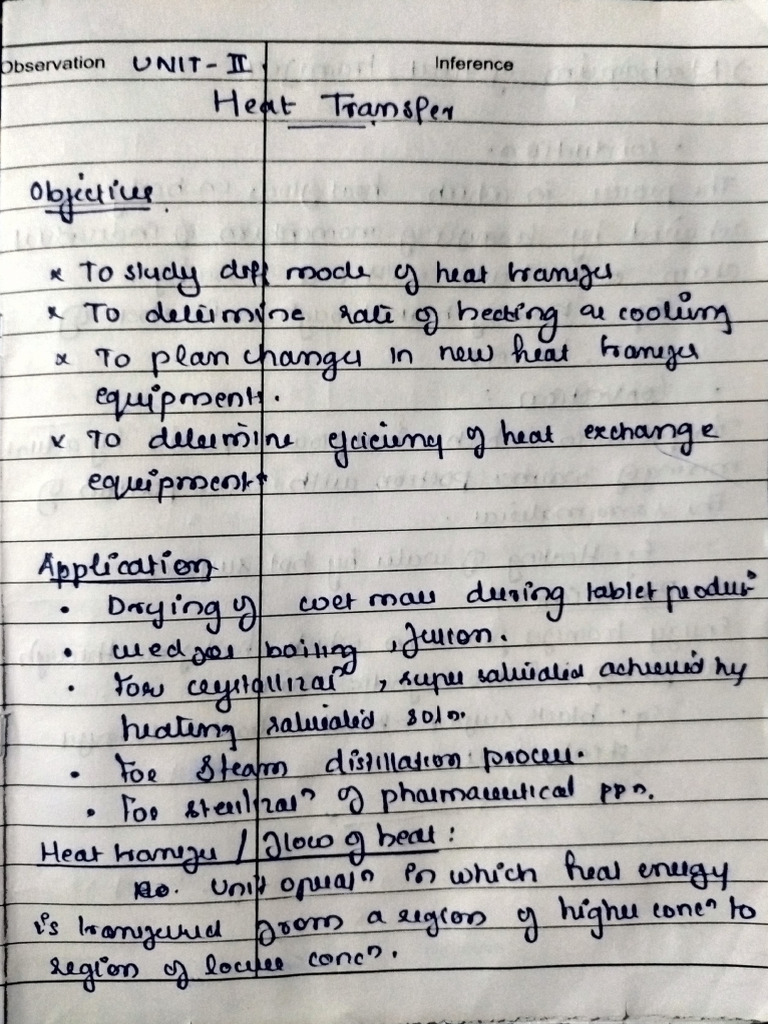 Observation UNIT-II Inference
Heat Transfer
Objective
x To study diff mode of heat transfer
x To determine rate of heating or cooling
x To plan changes in new heat transfer
equipments.
x To determine efficiency of heat exchange
equipment
Application
• Drying of wet mass during tablet product
• used for boiling, fusion.
• For crystallizatn, super saturated achieved by
heating saturated soln.
• For steam distillation process.
• For sterilizatn of pharmaceutical ppn.
Heat transfer / flow of heat :
Unit operatn in which heat energy
is transferred from a region of higher concn to
region of lower concn.